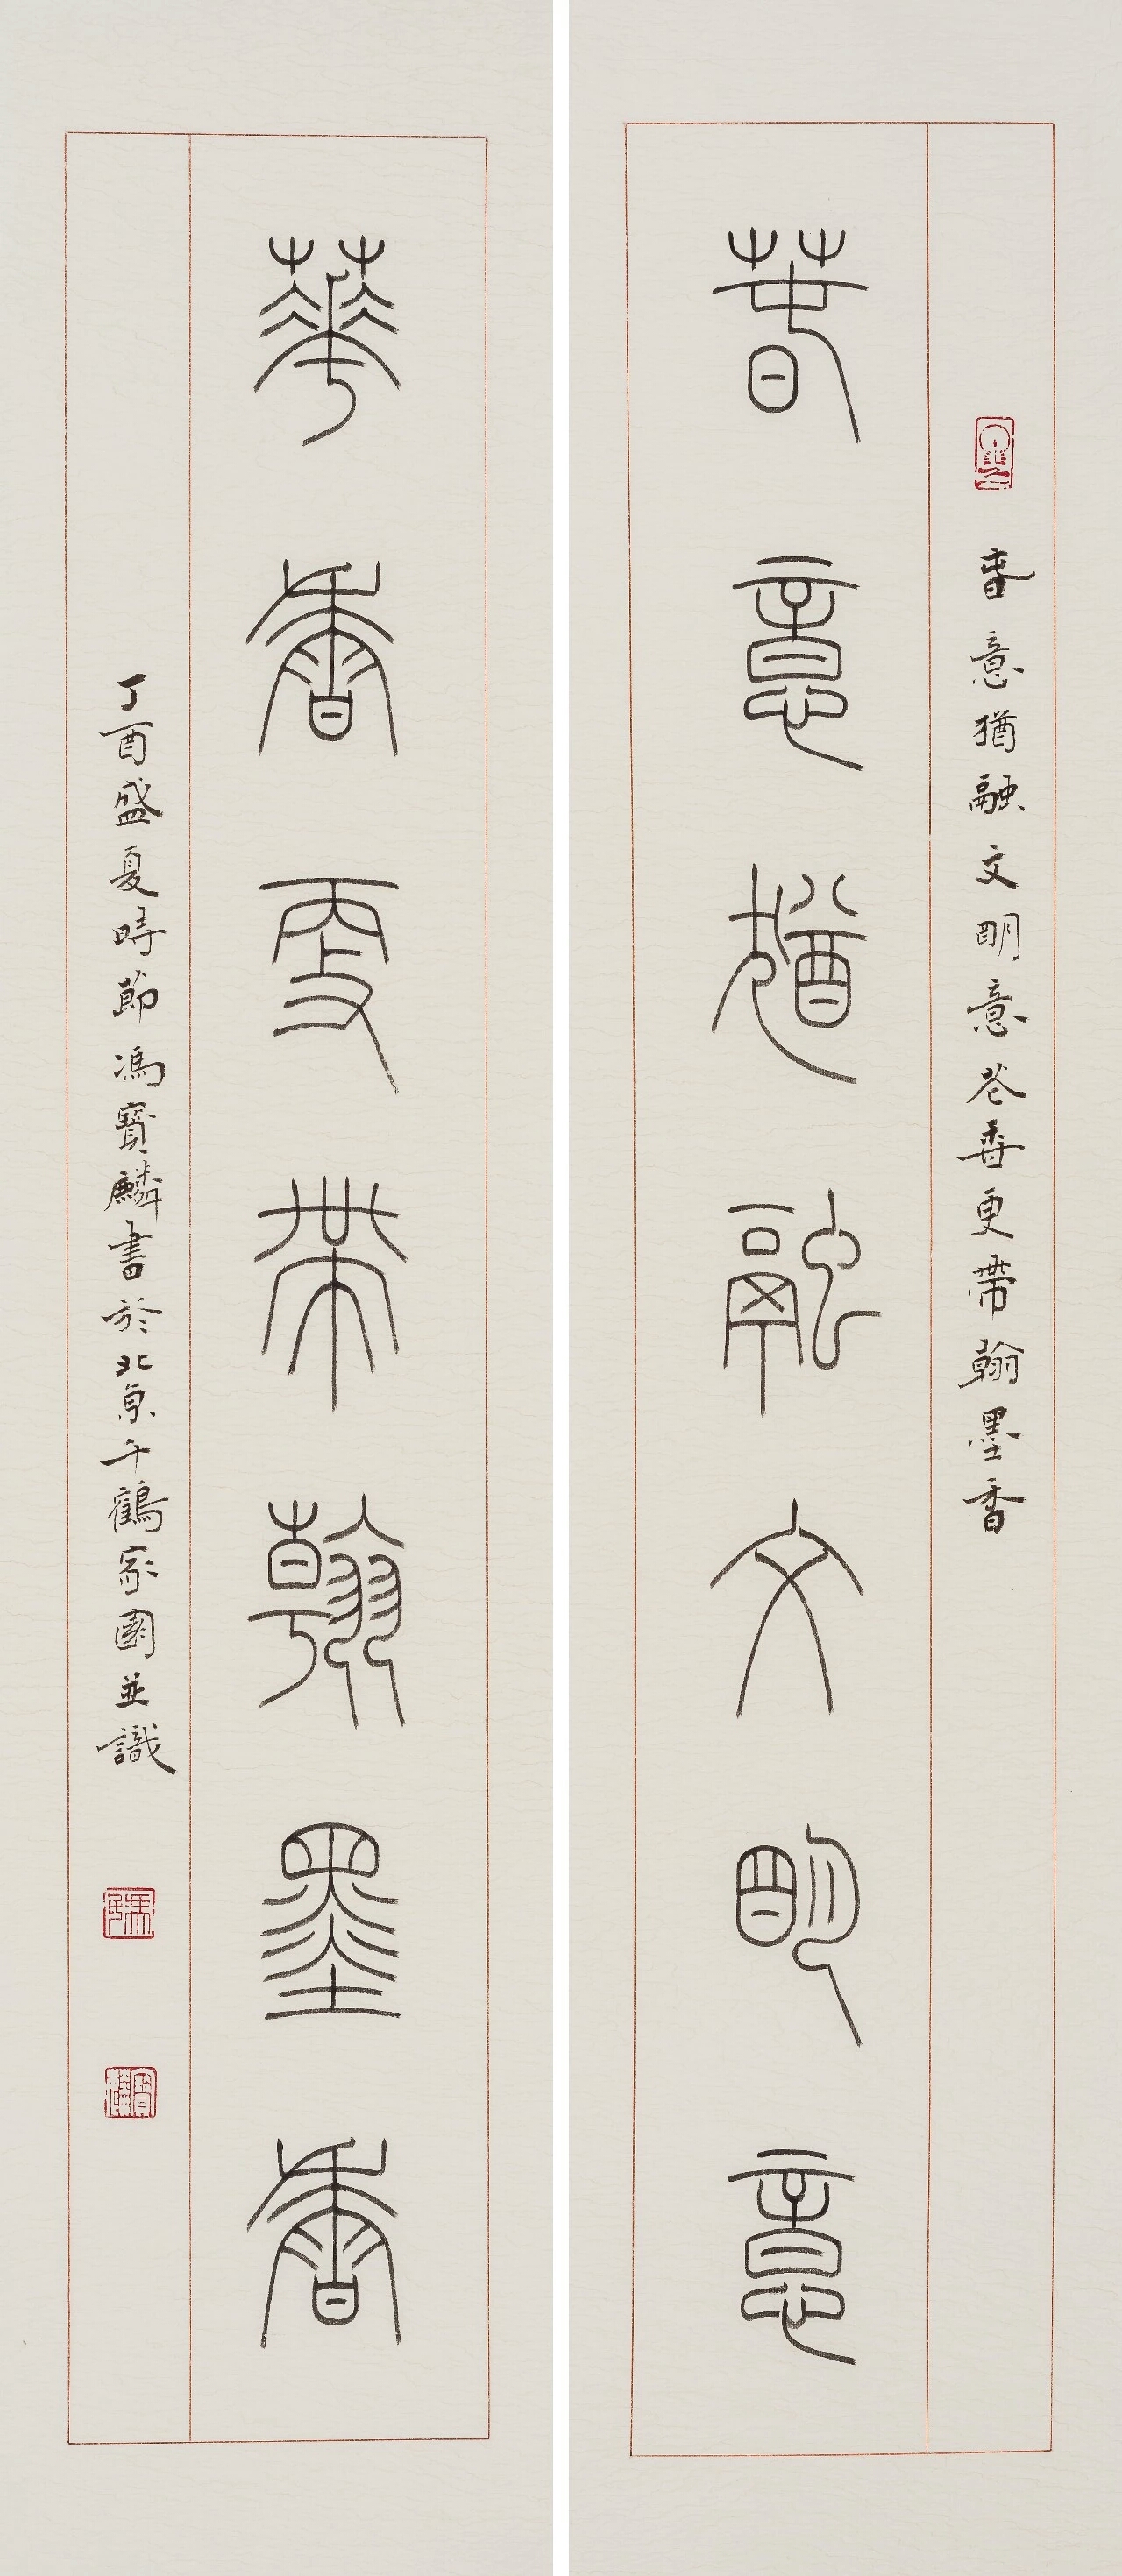 春意猶融文明意花香更帶翰墨香
春意猶融文明意
華香更帶翰墨香
丁酉盛夏時節馮寶麟書於北京千鶴家園並識
馮
寶麟